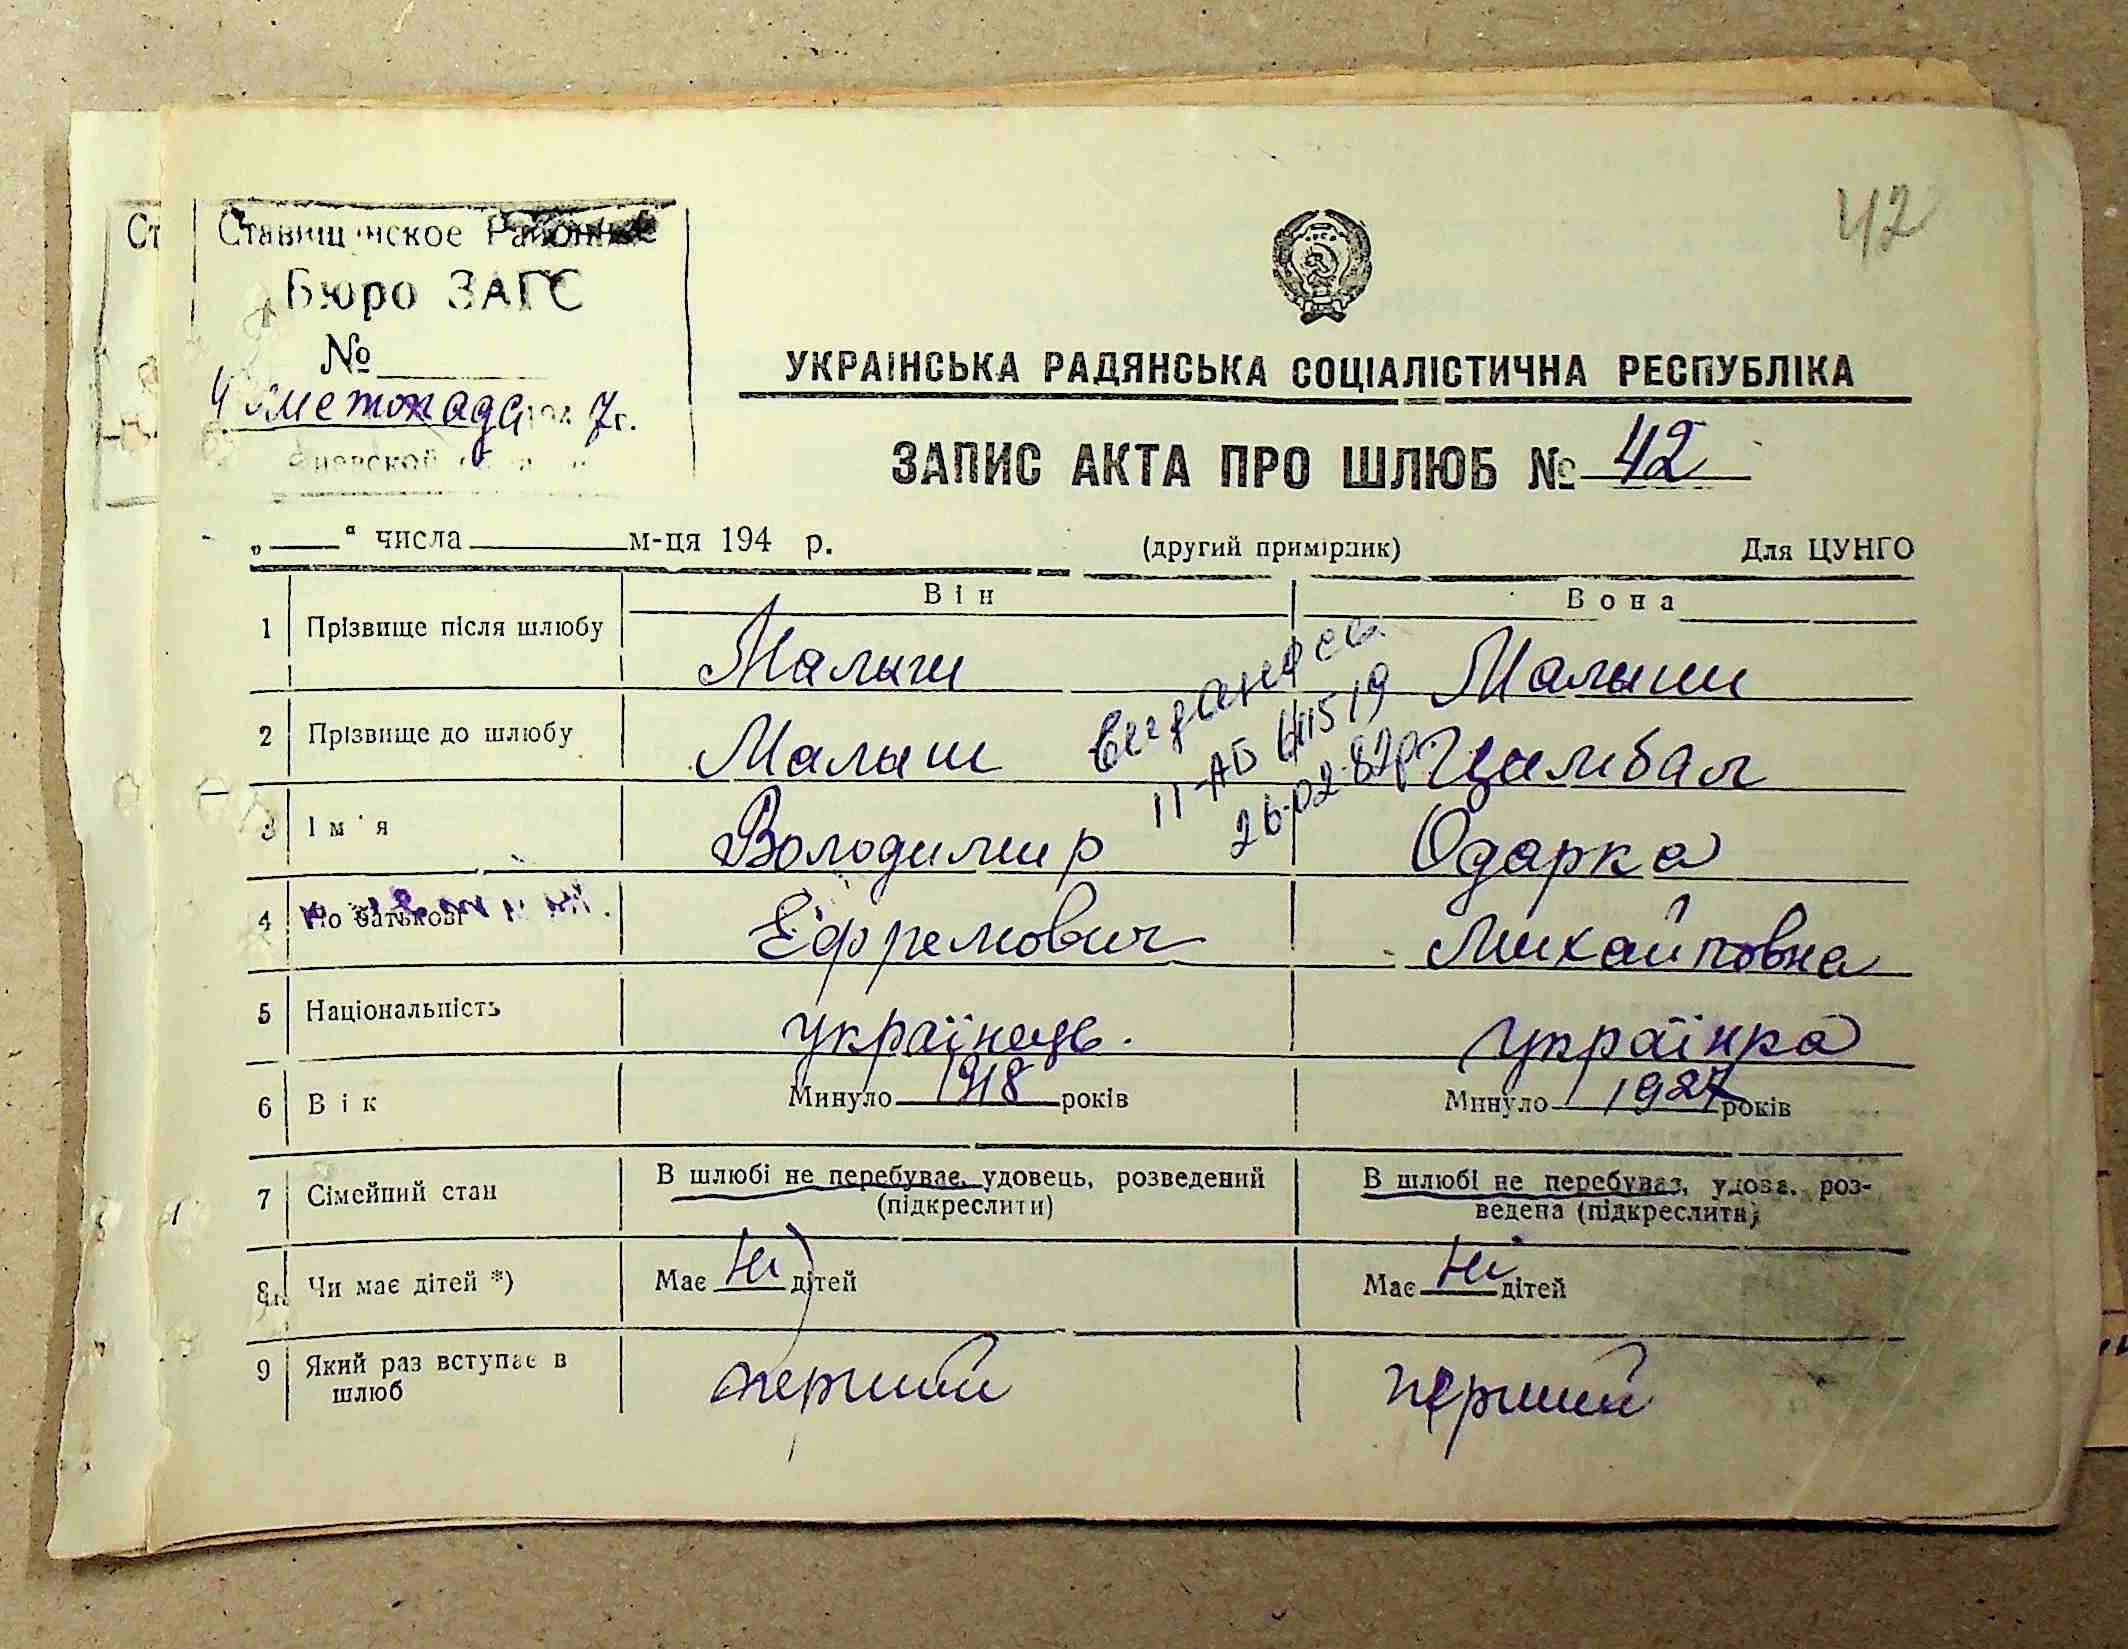 42
Ставищ нское Районное
Бюро ЗАГС
№
4 листопада 194 7г.
УКРАЇНСЬКА РАДЯНСЬКА СОЦІАЛІСТИЧНА РЕСПУБЛІКА
ЗАПИС АКТА ПРО ШЛЮБ № 42
„ “ числа м-ця 194 р. (другий примірник) Для ЦУНГО
Він Вона
1 Прізвище після шлюбу Малыш Малыш
видано св.
2 Прізвище до шлюбу Малыш Цимбал
II-АБ 411519
26.02.82р.
3 Ім'я Володимир Одарка
4 По батькові Ефремович Михайловна
5 Національність українець. українка
6 Вік Минуло 1918 років Минуло 1927 років
7 Сімейний стан В шлюбі не перебуває, удовець, розведений В шлюбі не перебуває, удова, роз-
(підкреслити) ведена (підкреслити)
8 Чи має дітей *) Має Ні дітей Має Ні дітей
9 Який раз вступає в перший перший
шлюб